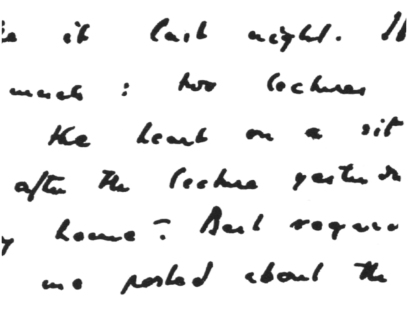 it last night.
much : two lectures
the heart on a sit
after the lecture yesterda
home - Best regar
me posted about the